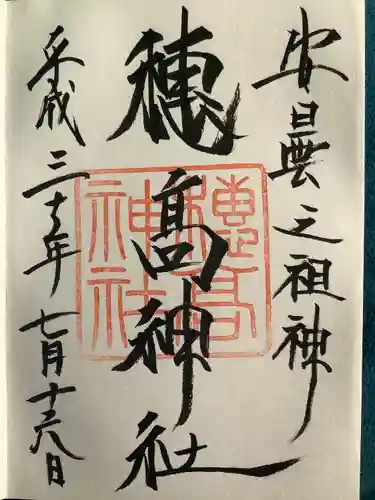 安曇之祖神
穂髙神社
穂高神社
平成三十年七月十六日